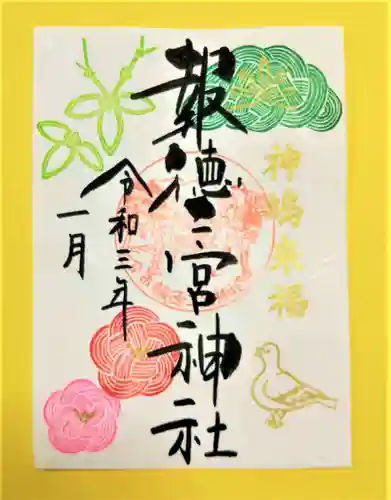 神鳩来福
報徳二宮神社
令和三年
一月